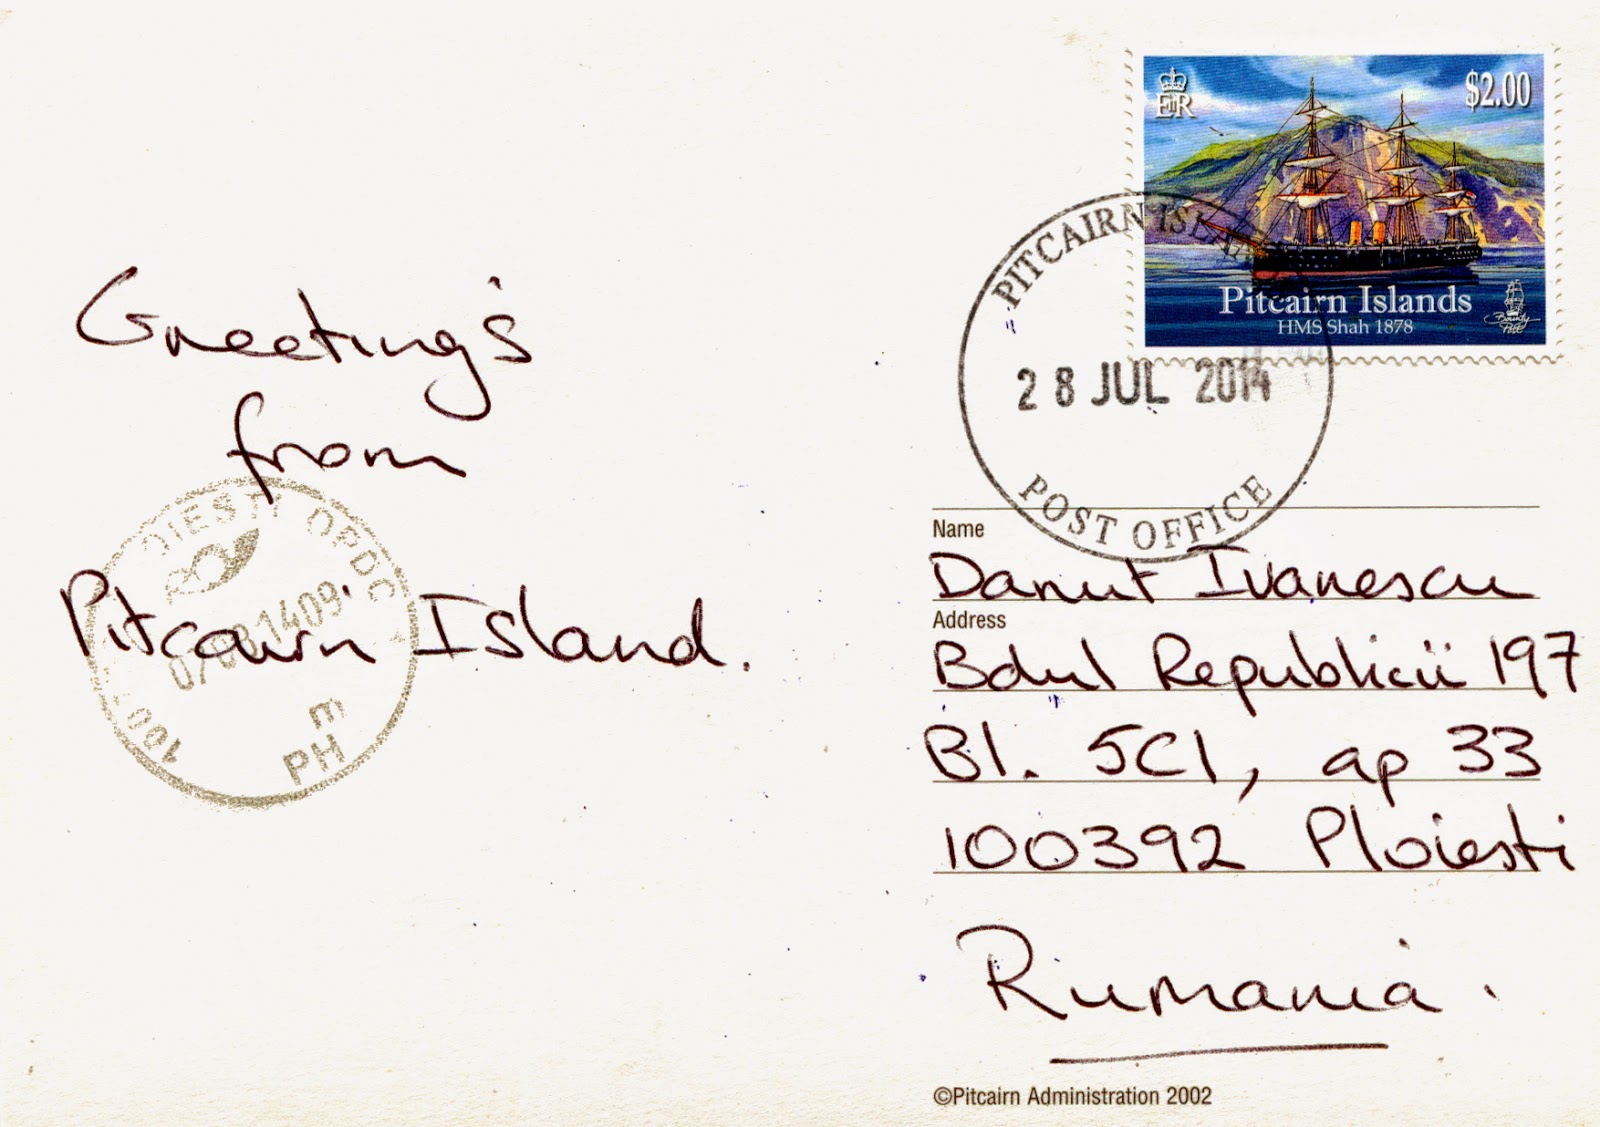 EIIR
$2.00
Pitcairn Islands
HMS Shah 1878
Bounty
Post
PITCAIRN ISLA
28 JUL 2014
POST OFFICE
Greeting's
from
Pitcairn Island.
OIESTI OPDC
1409
PH E
Name
Danut Ivanescu
Address
Bdul Republicii 197
Bl. 5C1, ap 33
100392 Ploiesti
Rumania.
©Pitcairn Administration 2002